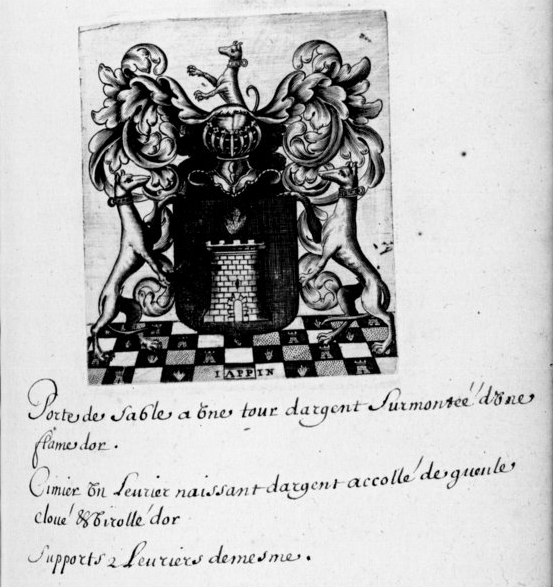 IAPPIN
Porte de sable a une tour dargent Surmonteé d'une
flame dor.
Cimier un Leurier naissant dargent accollé de gueule
cloué & virollé dor
Supports 2 Leuriers demesme.